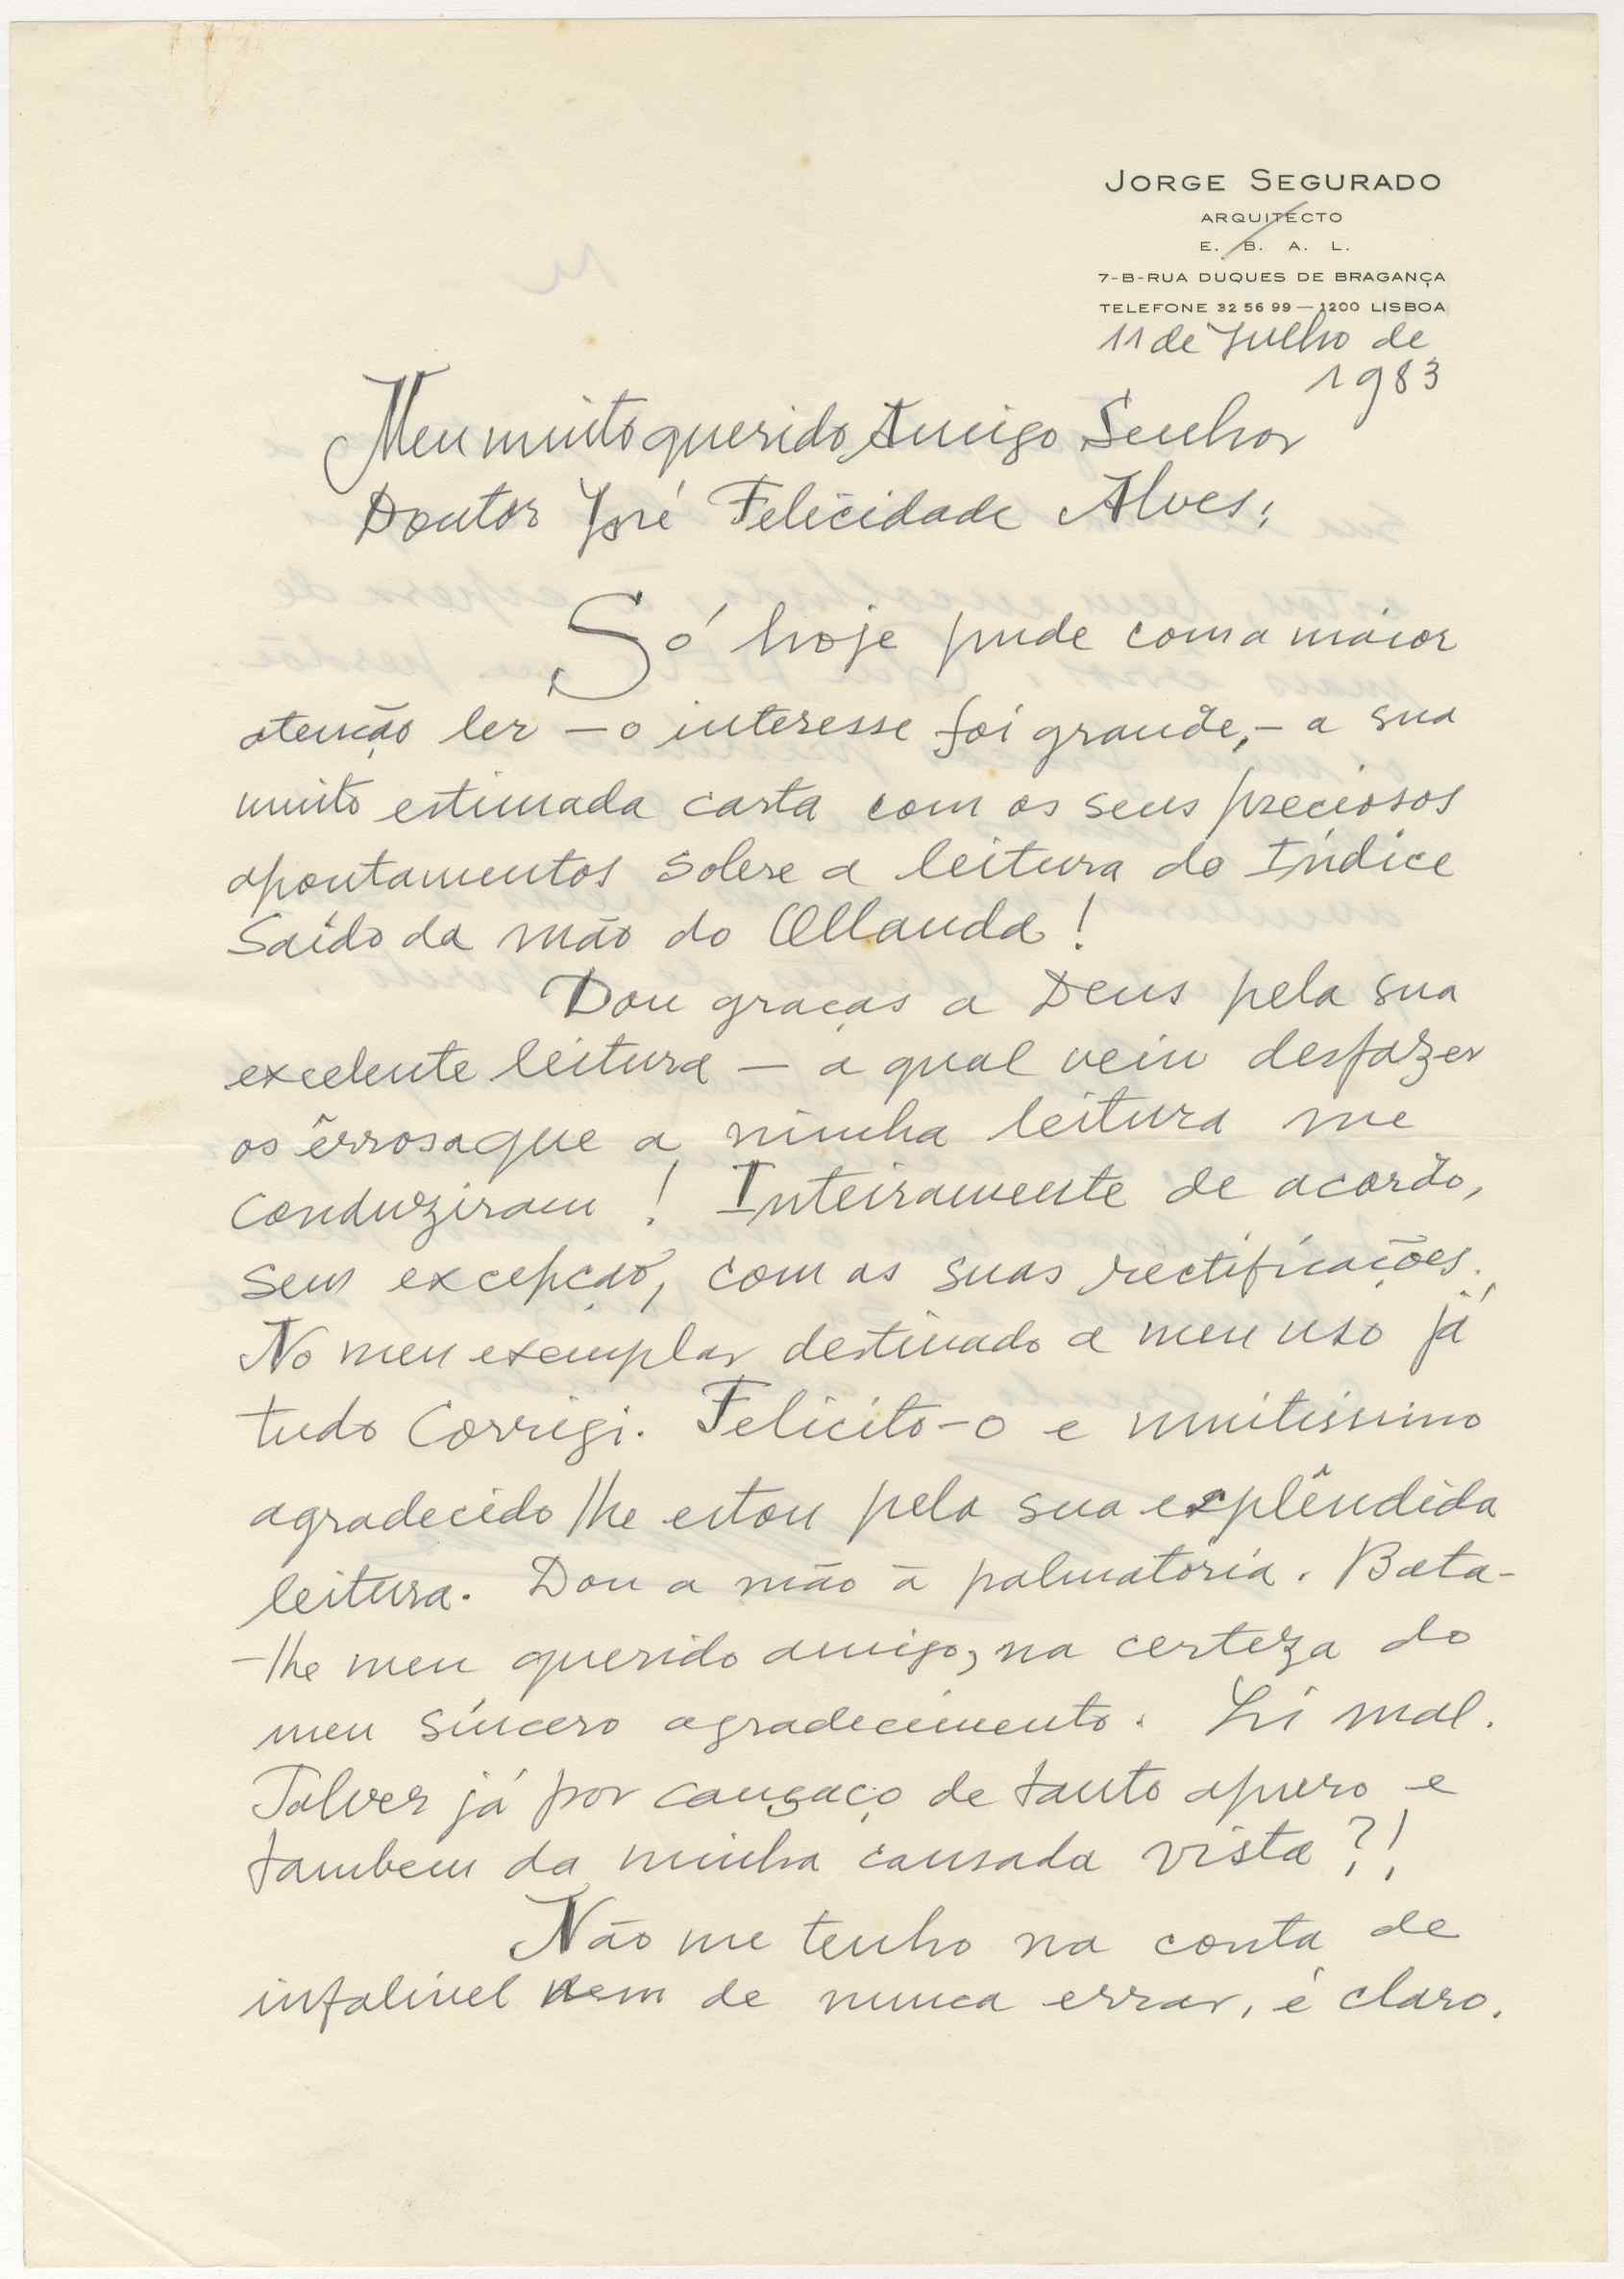 JORGE SEGURADO
ARQUITECTO
E. B. A. L.
7-B-RUA DUQUES DE BRAGANÇA
TELEFONE 32 56 99 — 1200 LISBOA
11 de Julho de
1983
Meu muito querido Amigo Senhor
Doutor José Felicidade Alves:
Só hoje pude com a maior
atenção ler — o interesse foi grande, — a sua
muito estimada carta com os seus preciosos
apontamentos sobre a leitura do Índice
saído da mão do Ollanda!
Dou graças a Deus pela sua
excelente leitura — a qual veiu desfazer
os êrros a que a minha leitura me
conduziram! Inteiramente de acordo,
sem excepção, com as suas rectificações.
No meu exemplar destinado a meu uso já
tudo corrigi. Felicito-o e muitissimo
agradecido lhe estou pela sua esplêndida
leitura. Dou a mão à palmatória. Bata-
-lhe meu querido amigo, na certeza do
meu sincero agradecimento. Li mal.
Talvez já por cansaço de tanto apuro e
tambem da minha cansada vista?!
Não me tenho na conta de
infalivel nem de nunca errar, é claro.